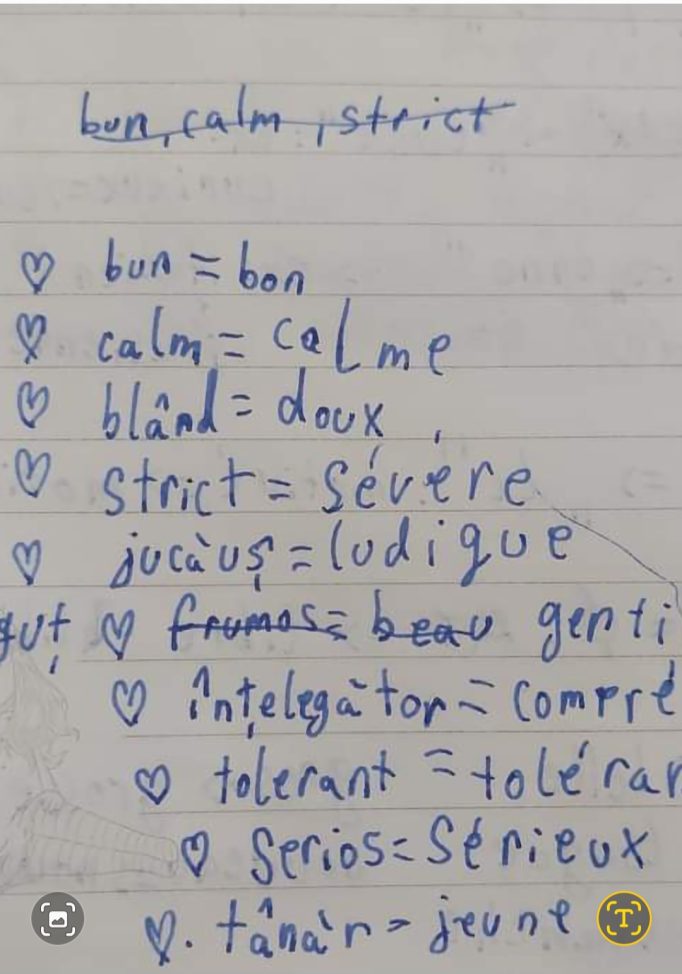 bun, calm, strict
♡ bun = bon
♡ calm = calme
♡ blând = doux
♡ strict = sévère
♡ jucăuș = ludique
♡ frumos = beau genti
♡ înțelegător = compré
♡ tolerant = toléran
♡ serios = sérieux
♡. tânăr = jeune